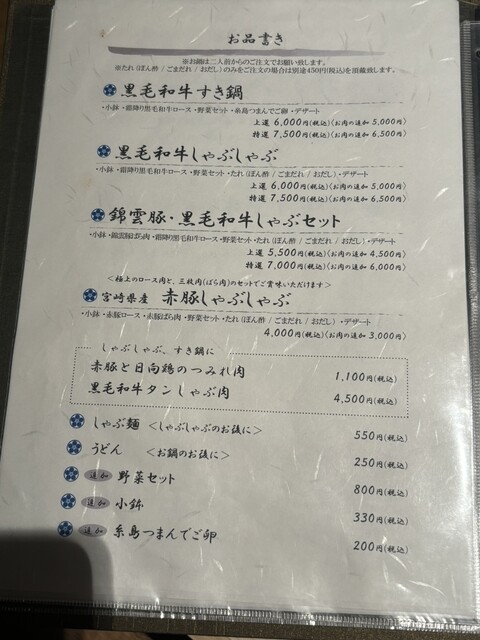 お品書き
※お鍋は二人前からのご注文でお願い致します。
※たれ(ぽん酢 / ごまだれ / おだし)のみをご注文の場合は別途450円(税込)を頂戴致します。
黒毛和牛すき鍋
・小鉢・霜降り黒毛和牛ロース・野菜セット・糸島つまんでご卵・デザート
上選 6,000円(税込)〈お肉の追加 5,000円〉
特選 7,500円(税込)〈お肉の追加 6,500円〉
黒毛和牛しゃぶしゃぶ
・小鉢・霜降り黒毛和牛ロース・野菜セット・たれ(ぽん酢 / ごまだれ / おだし)・デザート
上選 6,000円(税込)〈お肉の追加 5,000円〉
特選 7,500円(税込)〈お肉の追加 6,500円〉
錦雲豚・黒毛和牛しゃぶセット
・小鉢・錦雲豚ばら肉・霜降り黒毛和牛ロース・野菜セット・たれ(ぽん酢 / ごまだれ / おだし)・デザート
上選 5,500円(税込)〈お肉の追加 4,500円〉
特選 7,000円(税込)〈お肉の追加 6,000円〉
<極上のロース肉と、三枚肉(ばら肉)のセットでご賞味いただけます>
宮崎県産 赤豚しゃぶしゃぶ
・小鉢・赤豚ロース・赤豚ばら肉・野菜セット・たれ(ぽん酢 / ごまだれ / おだし)・デザート
4,000円(税込)〈お肉の追加 3,000円〉
しゃぶしゃぶ、すき鍋に
赤豚と日向鶏のつみれ肉 1,100円(税込)
黒毛和牛タンしゃぶ肉 4,500円(税込)
しゃぶ麺 <しゃぶしゃぶのお後に> 550円(税込)
うどん <お鍋のお後に> 250円(税込)
追加 野菜セット 800円(税込)
追加 小鉢 330円(税込)
追加 糸島つまんでご卵 200円(税込)